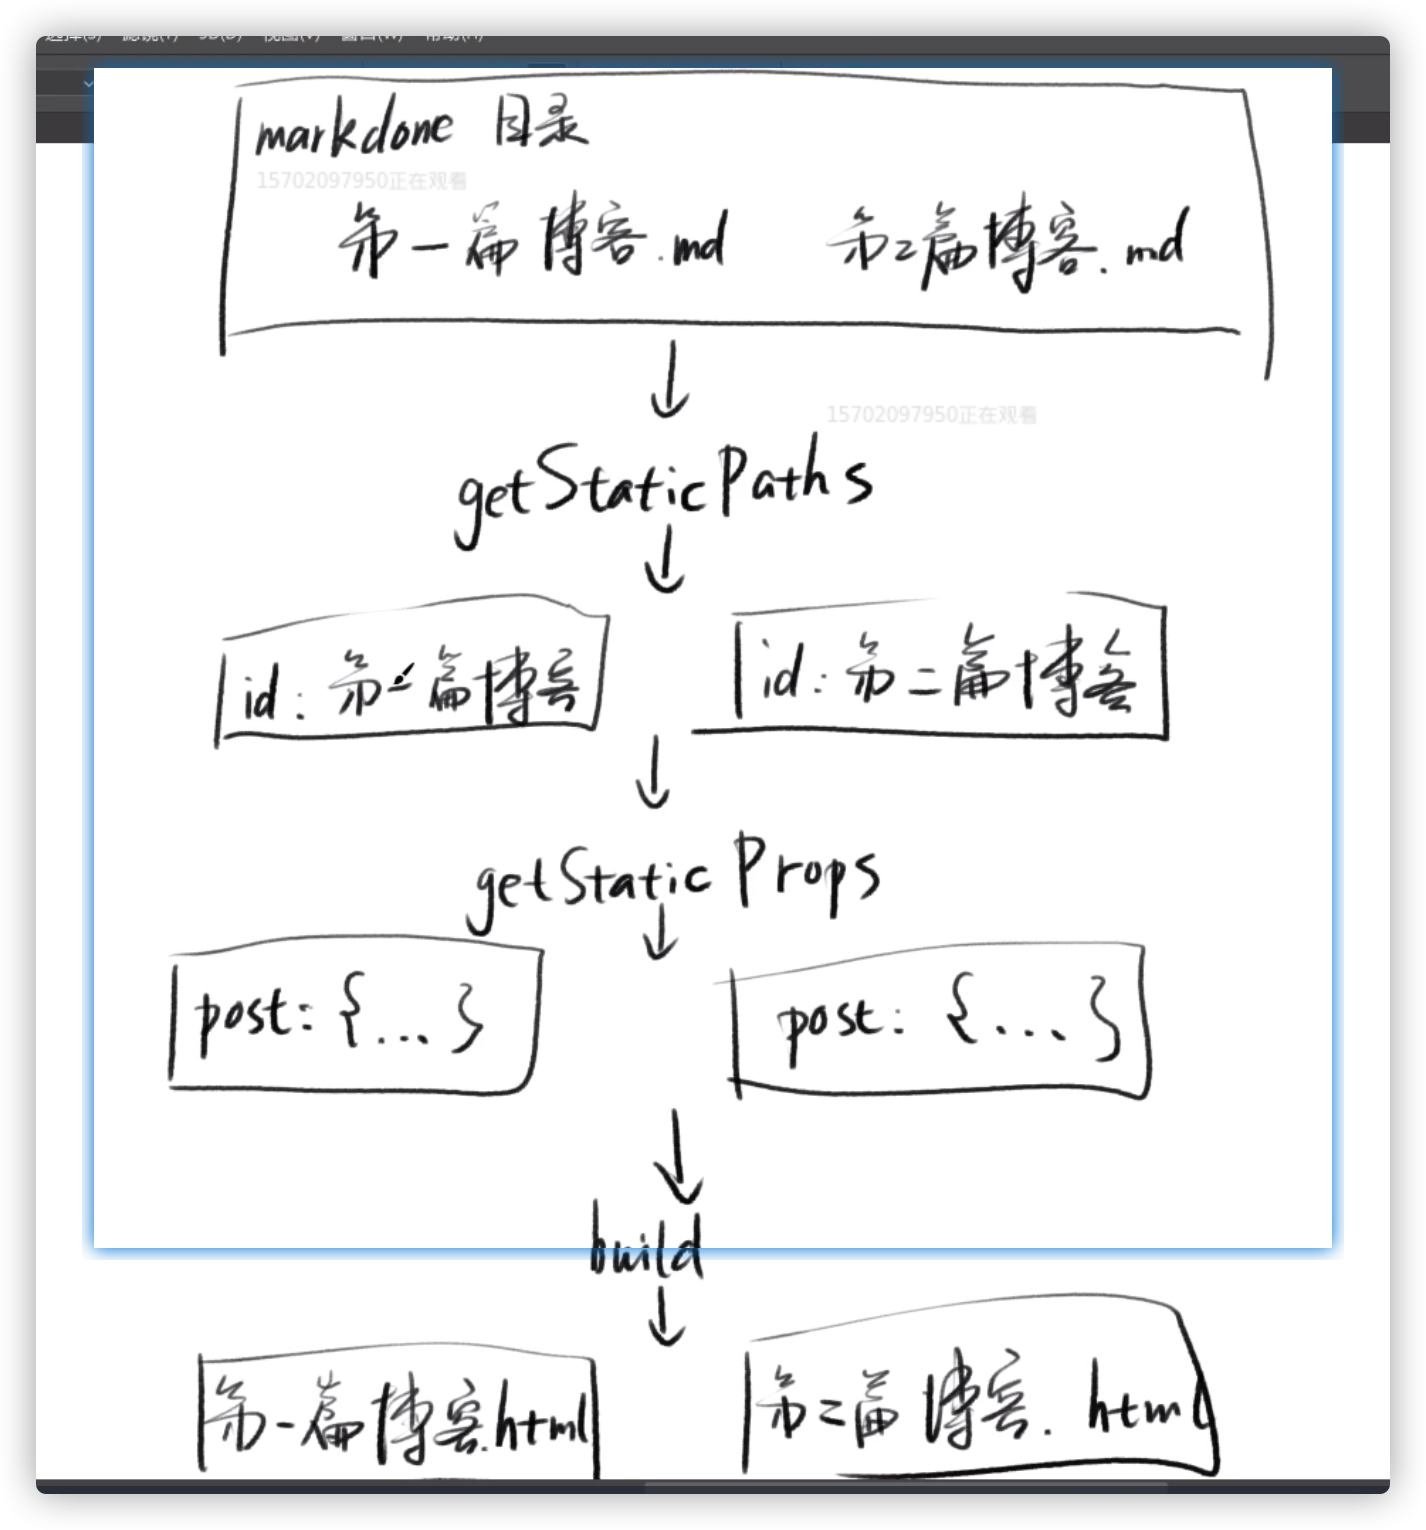 选择(S) 滤镜(T) 3D(D) 视图(V) 窗口(W) 帮助(H)
markdone 目录
15702097950正在观看
第一篇博客.md 第二篇博客.md
15702097950正在观看
getStaticPaths
id: 第一篇博客 id: 第二篇博客
getStaticProps
post: {...} post: {...}
build
第一篇博客.html 第二篇博客.html